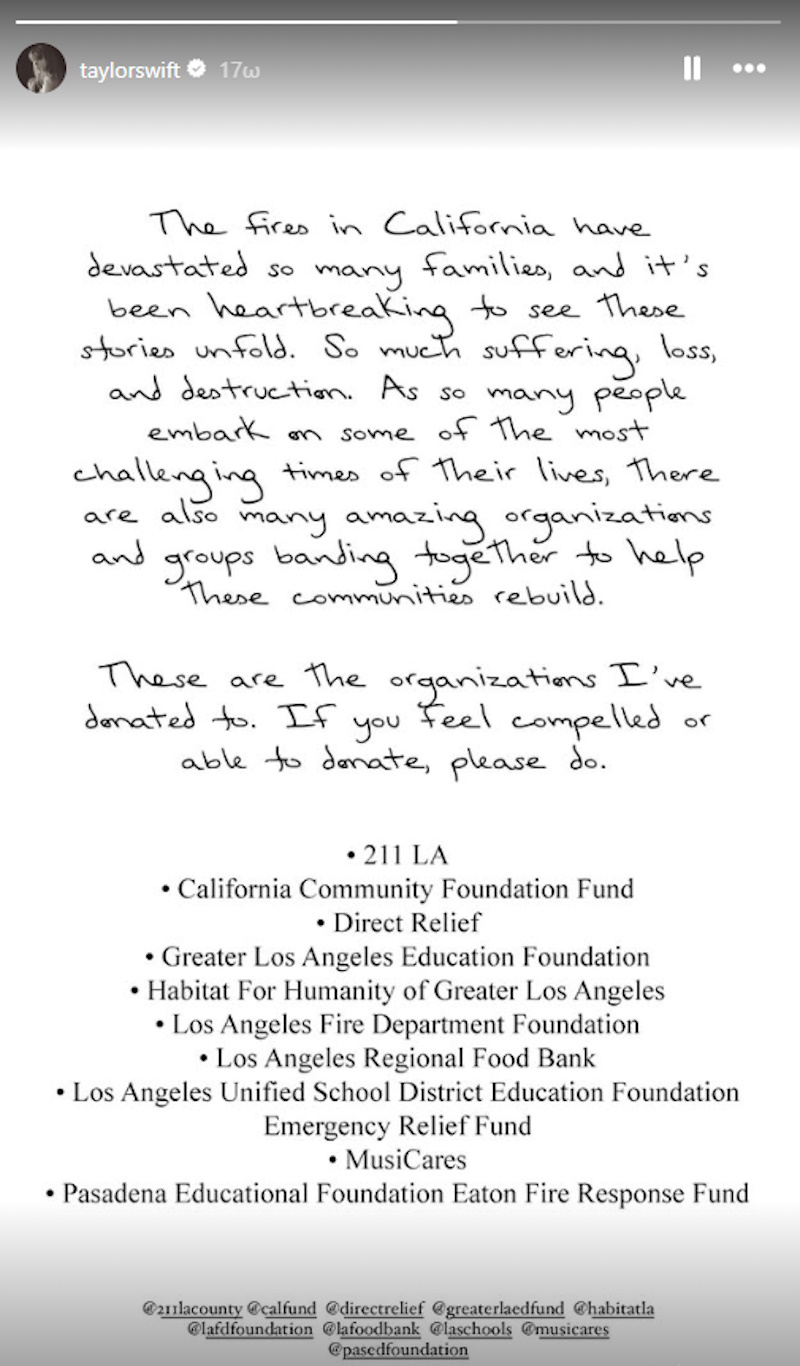 taylorswift 17ω
The fires in California have
devastated so many families, and it's
been heartbreaking to see these
stories unfold. So much suffering, loss,
and destruction. As so many people
embark on some of the most
challenging times of their lives, there
are also many amazing organizations
and groups banding together to help
these communities rebuild.
These are the organizations I've
donated to. If you feel compelled or
able to donate, please do.
• 211 LA
• California Community Foundation Fund
• Direct Relief
• Greater Los Angeles Education Foundation
• Habitat For Humanity of Greater Los Angeles
• Los Angeles Fire Department Foundation
• Los Angeles Regional Food Bank
• Los Angeles Unified School District Education Foundation
Emergency Relief Fund
• MusiCares
• Pasadena Educational Foundation Eaton Fire Response Fund
@211lacounty @calfund @directrelief @greaterlaedfund @habitatla
@lafdfoundation @lafoodbank @laschools @musicares
@pasedfoundation